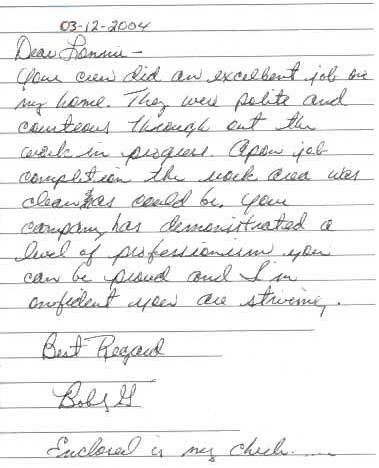 03-12-2004
Dear Lonnie -
Your crew did an excelbent job on
my home. They were polite and
courteous through out the
work in progress. Apon job
completion the work area was
clean as could be. Your
company has demonistrated a
level of professionism you
can be proud and I'm
confident you are striveing.
Best Regard
Bob G
Enclosed is my check....